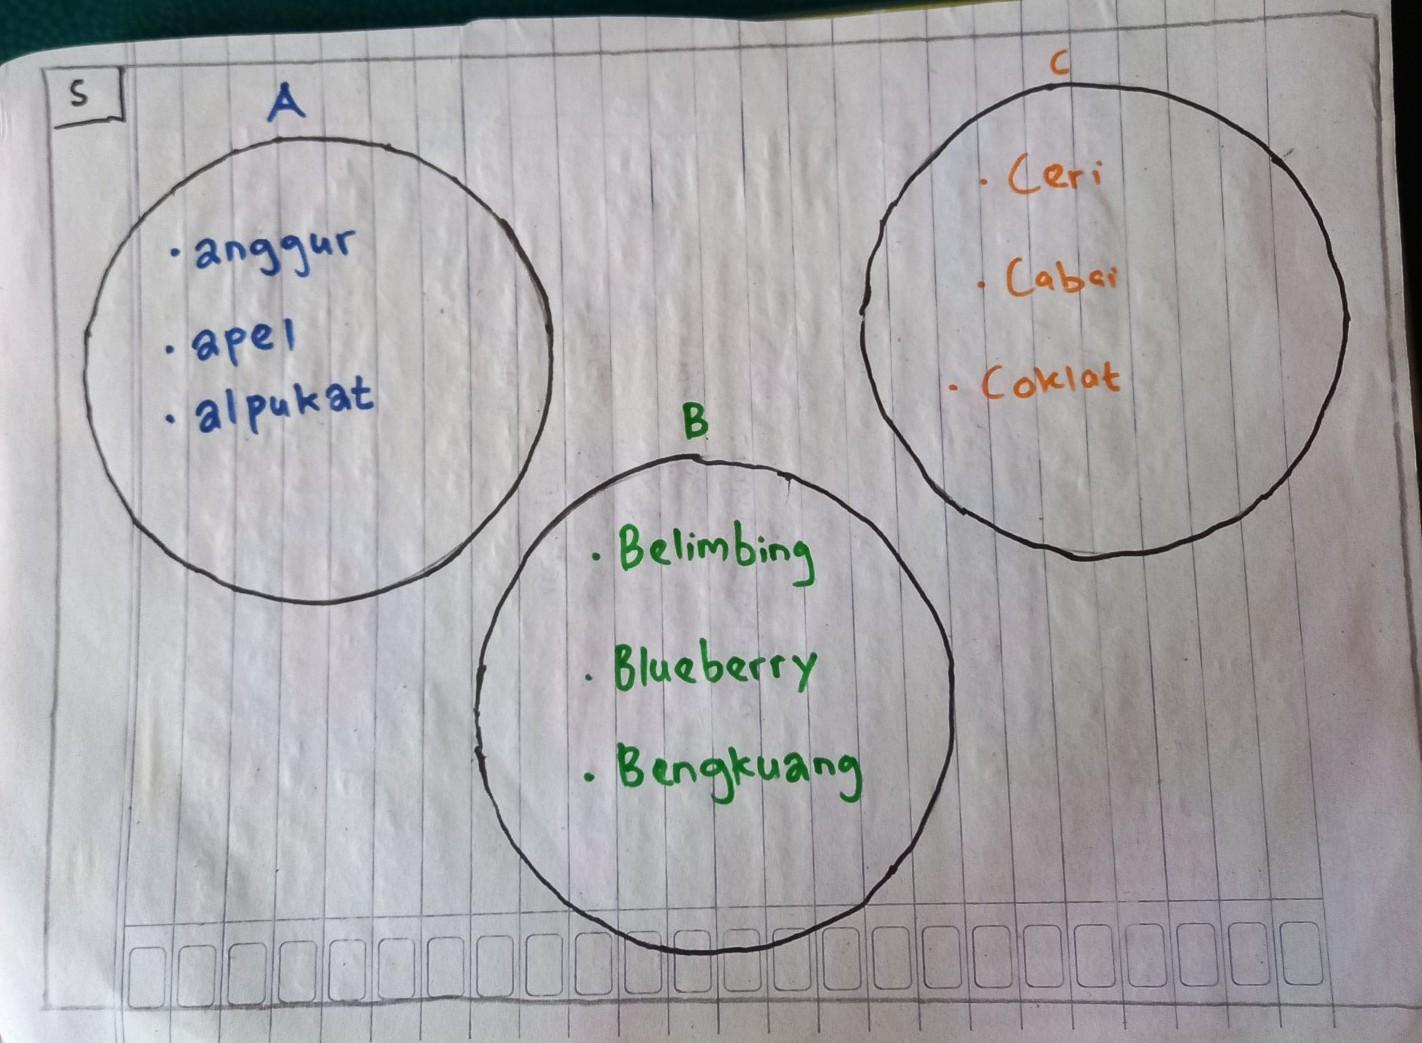 S
A
· anggur
· apel
· alpukat
B
· Belimbing
· Blueberry
· Bengkuang
C
· Ceri
· Cabai
· Coklat